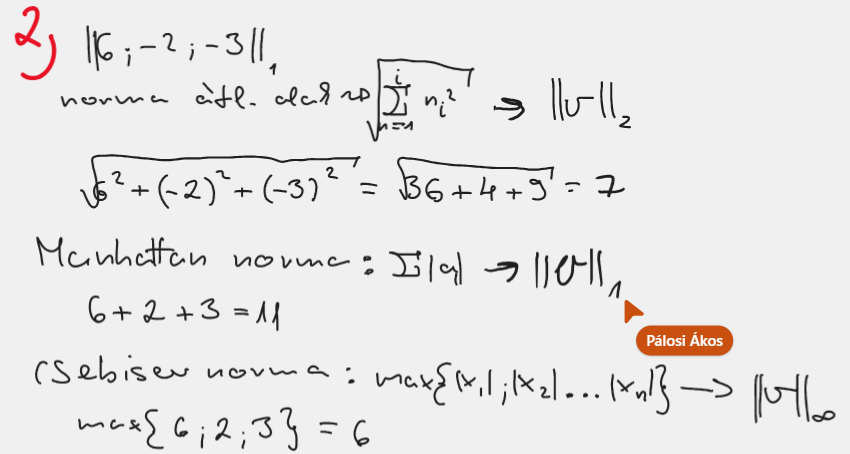 2)
‖6 ; -2 ; -3‖₁
norma ált. alak ⇝ √(∑ᵢₙ₌₁ nᵢ²) → ‖v‖₂
√(6² + (-2)² + (-3)²) = √(36 + 4 + 9) = 7
Manhattan norma : Σ|a| → ‖v‖₁
6 + 2 + 3 = 11
Pálosi Ákos
Csebisev norma : max{|x₁| ; |x₂| ... |xₙ|} → ‖v‖∞
max{6 ; 2 ; 3} = 6